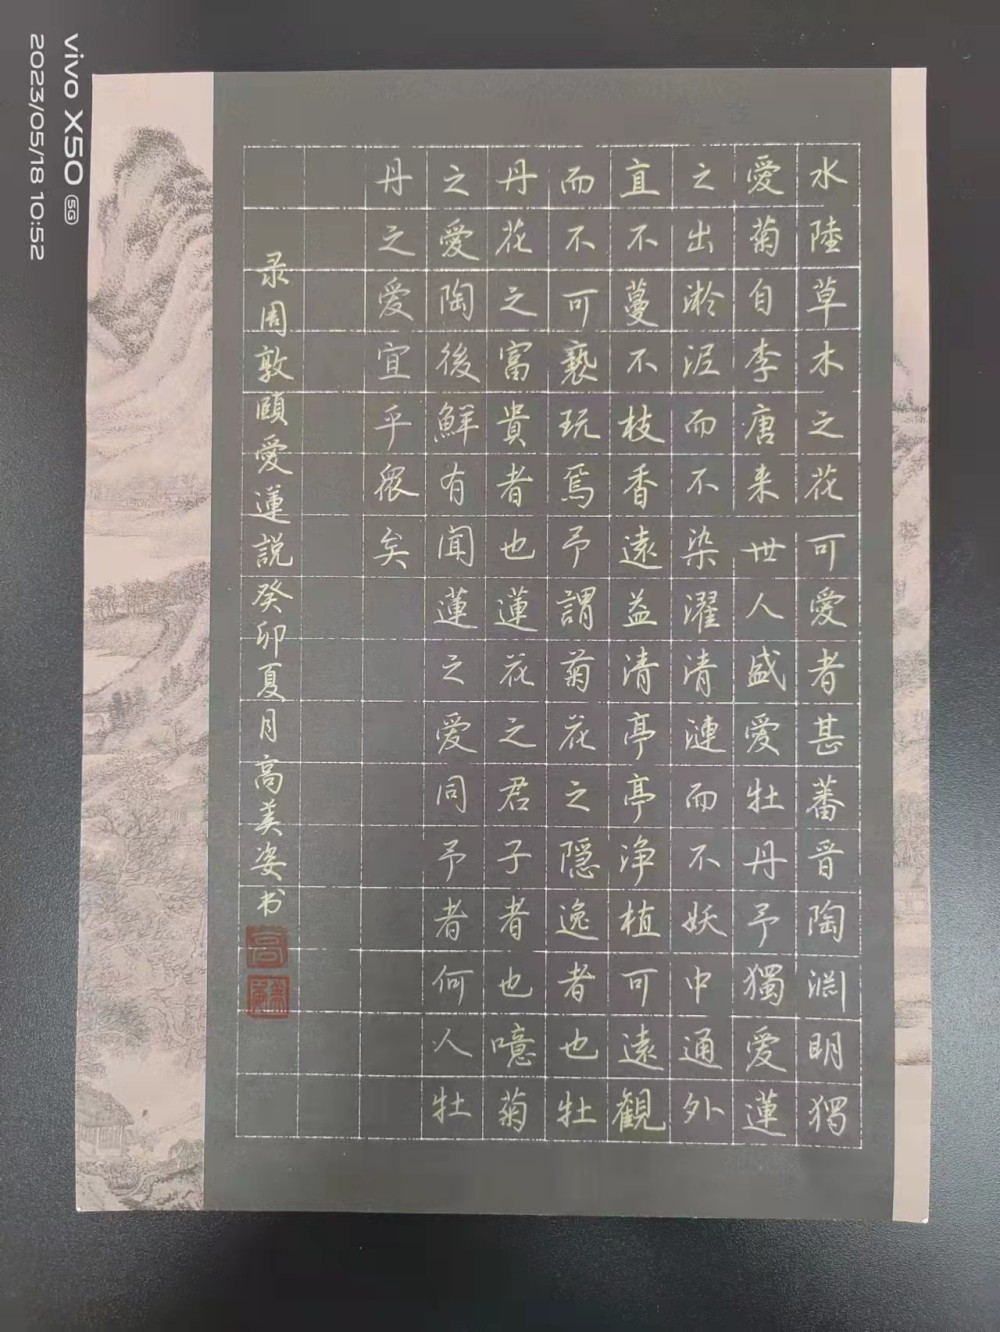 水陸草木之花可愛者甚蕃晋陶渊明獨
愛菊自李唐来世人盛愛牡丹予獨愛蓮
之出淤泥而不染濯清漣而不妖中通外
直不蔓不枝香遠益清亭亭净植可遠観
而不可亵玩焉予謂菊花之隠逸者也牡
丹花之富貴者也蓮花之君子者也噫菊
之愛陶後鮮有闻蓮之愛同予者何人牡
丹之愛宜乎衆矣
录周敦頤愛蓮説癸卯夏月高美姿书
vivo X50 5G
2023/05/18 10:52